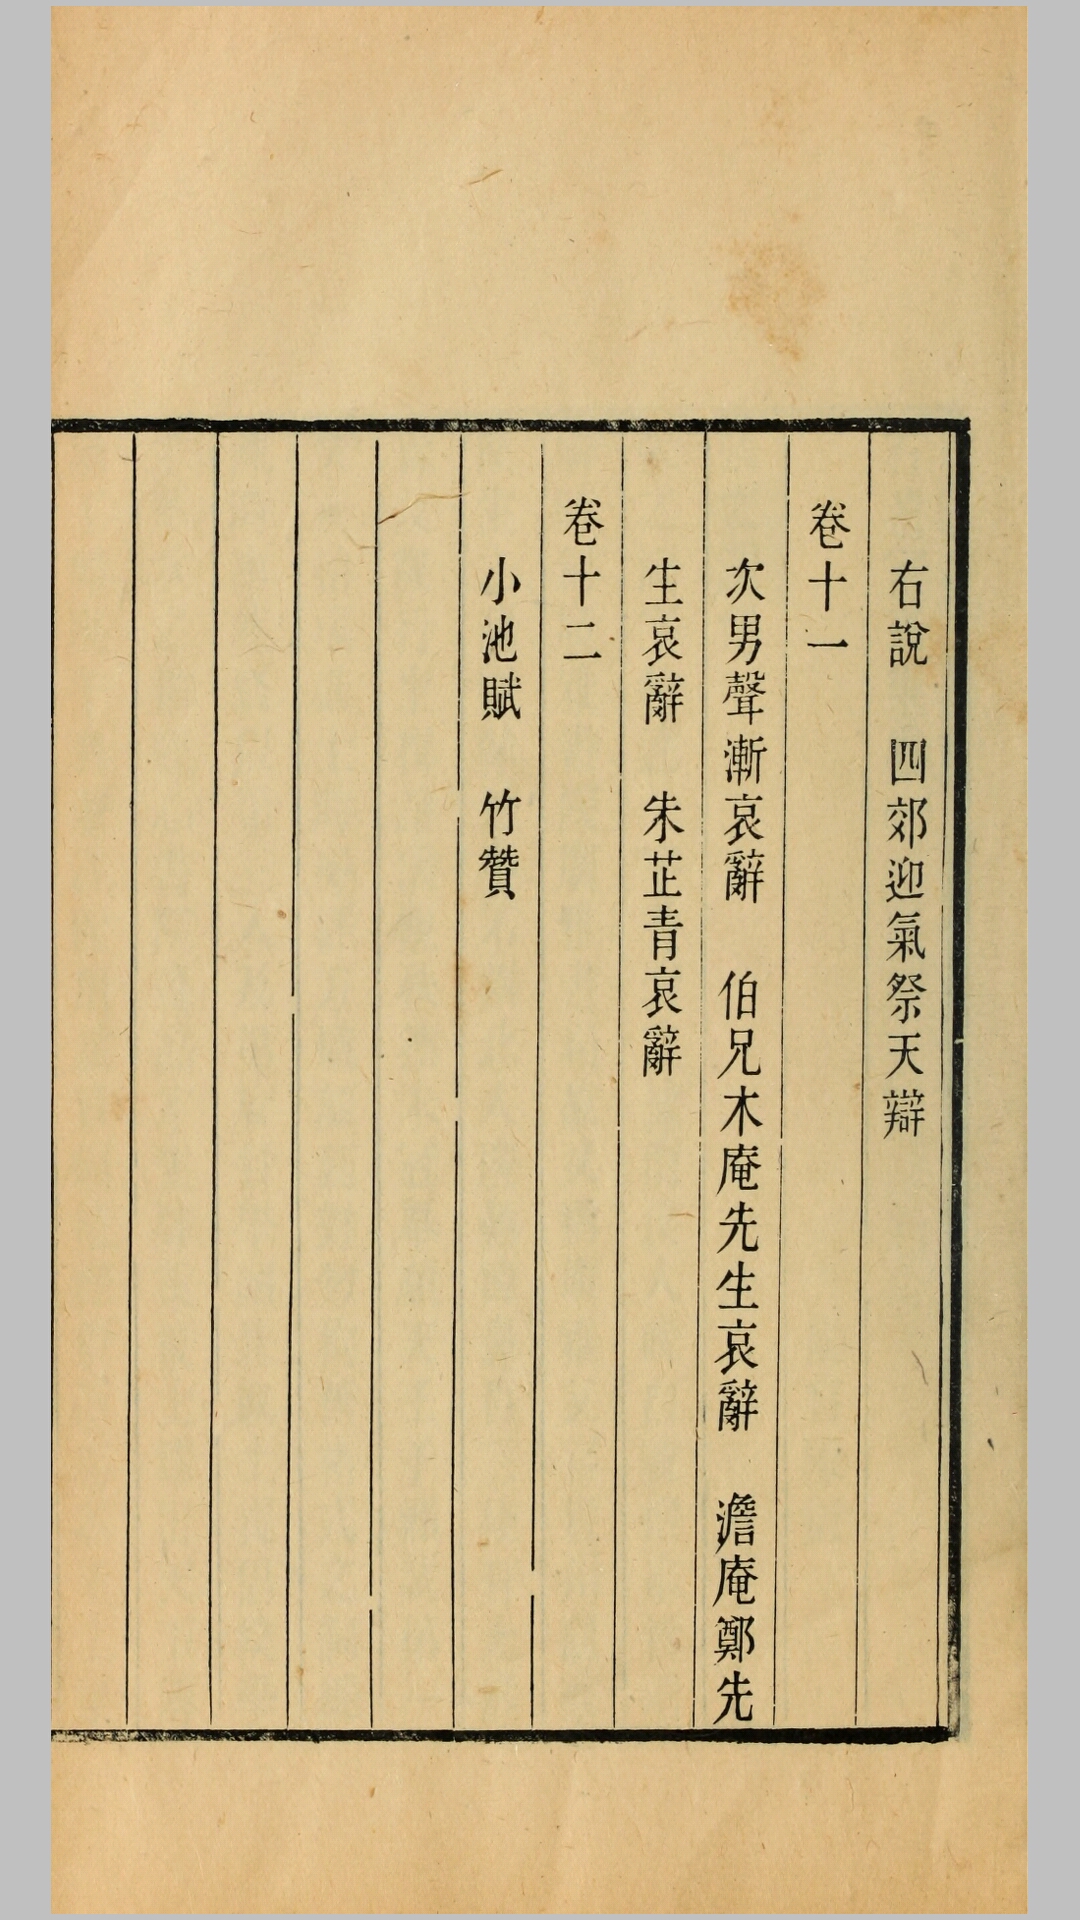 右說　四郊迎氣祭天辯
卷十一
次男聲漸哀辭　伯兄木庵先生哀辭　澹庵鄭先
生哀辭　朱芷青哀辭
卷十二
小池賦　竹贊